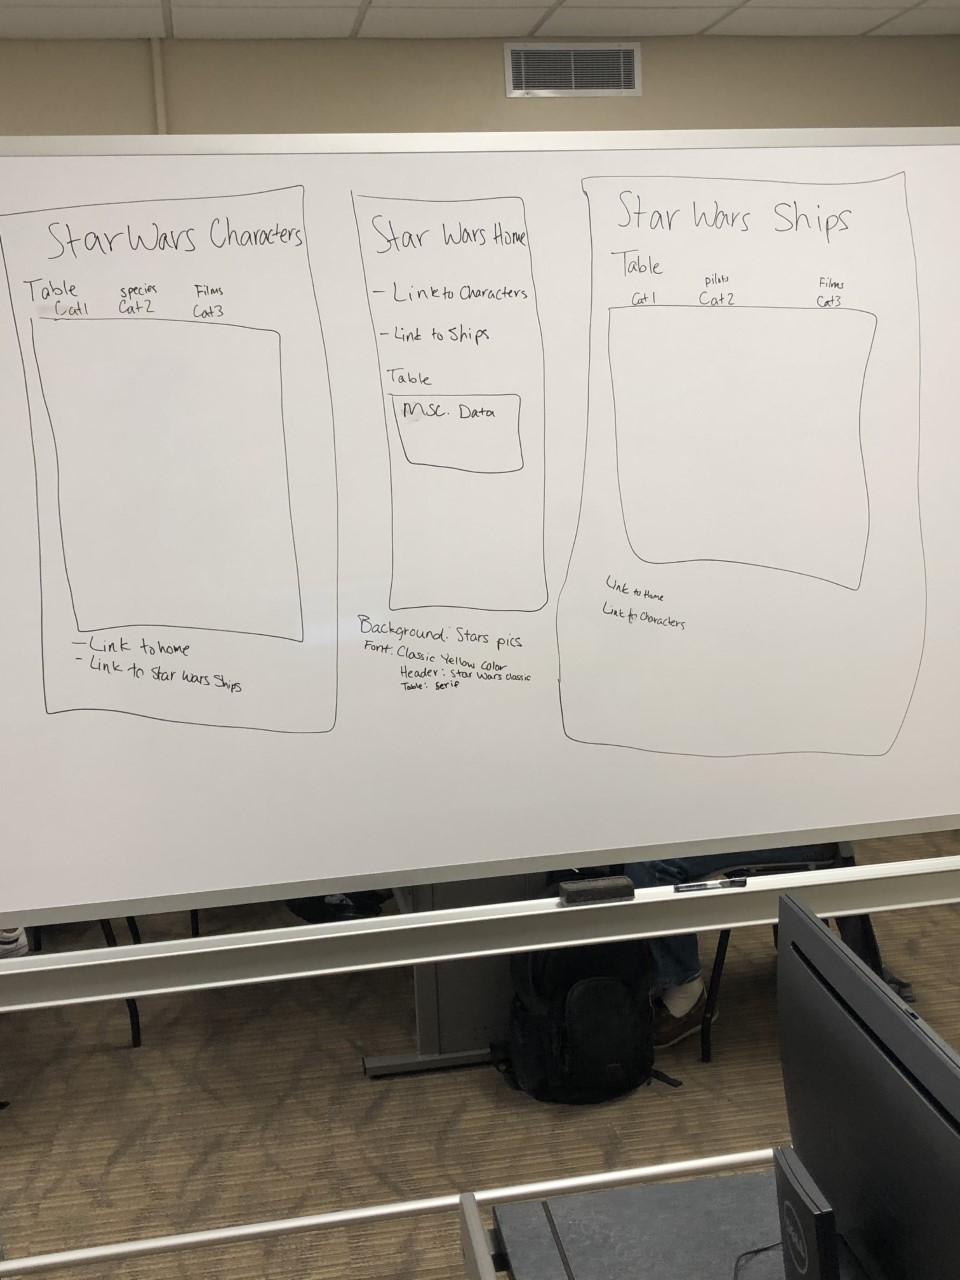 Star Wars Characters
Table
species
Films
Cat1
Cat2
Cat3
- Link to home
- Link to Star Wars Ships
Star Wars Home
- Link to Characters
- Link to Ships
Table
Msc. Data
Background: Stars pics
Font: Classic Yellow color
Header: Star Wars classic
Table: Serif
Star Wars Ships
Table
pilots
Films
Cat1
Cat2
Cat3
Link to Home
Link to Characters
DELL